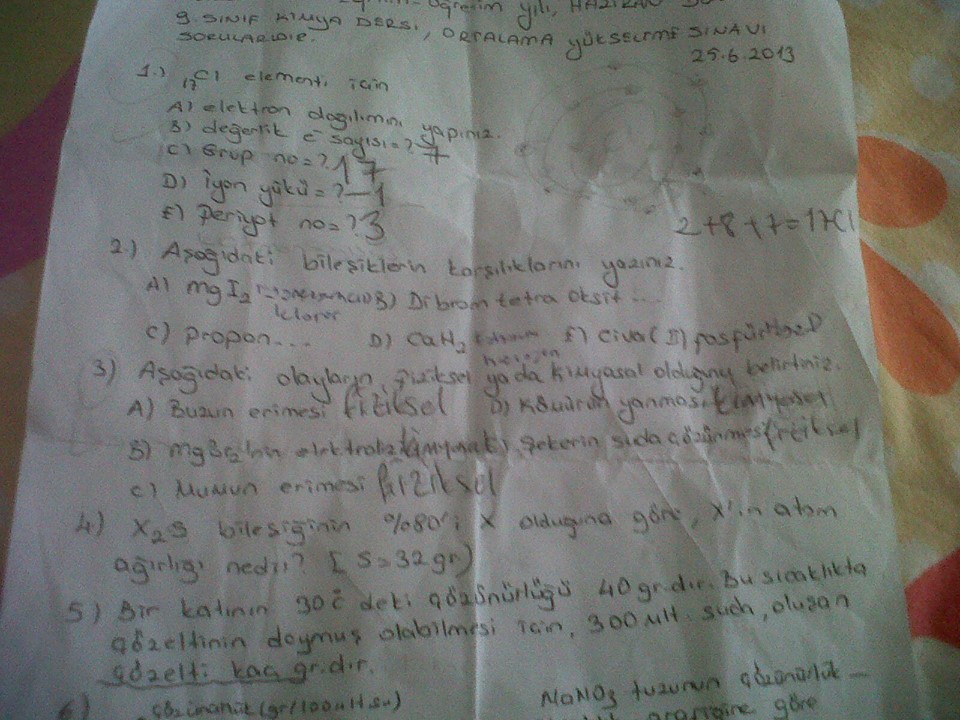 öğretim yılı, HAZİRAN
9. SINIF KİMYA DERSİ, ORTALAMA YÜKSELTME SINAVI
SORULARIDIR.
25.6.2013
1.) 17Cl elementi için
A) elektron dağılımını yapınız.
B) değerlik e⁻ sayısı=? 7
C) Grup no=? 17
D) İyon yükü=? -1
E) Periyot no=? 3
2+8+7=17Cl
2.) Aşağıdaki bileşiklerin karşılıklarını yazınız.
A) MgI2 B) Dibrom tetra oksit ...
klorür
C) Propan... D) CaH2 E) Civa(II) fosfür
3) Aşağıdaki olayların, fiziksel ya da kimyasal olduğunu belirtiniz.
A) Buzun erimesi fiziksel D) Kömürün yanması kimyasal
B) MgBr2'nin elektrolizi kimyasal şekerin suda çözünmesi fiziksel
C) Mumun erimesi fiziksel
4) X2S bileşiğinin %80'i X olduğuna göre, X'in atom
ağırlığı nedir? [S=32 gr)
5) Bir katının 30°C deki çözünürlüğü 40 gr.dır. Bu sıcaklıkta
çözeltinin doymuş olabilmesi için, 300 mlt. suda, oluşan
çözelti kaç gr.dır.
6) çözünürlük (gr/100 mlt.su) NaNO3 tuzunun çözünürlük-
göre